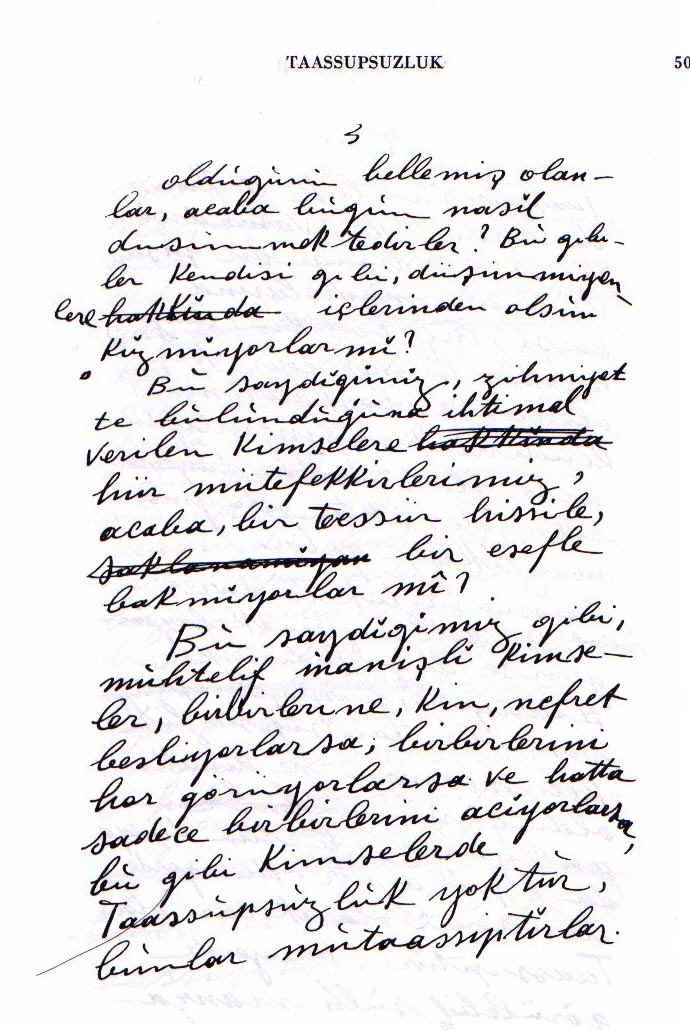 TAASSUPSUZLUK
50
3
olduğunu bellemiş olan-
lar, acaba bugün nasıl
düşünmektedirler? Bu gibi-
ler kendisi gibi, düşünmiyen
lere hakkında içlerinden olsun
kızmıyorlar mı?
Bu saydığımız, zihniyet
te bulunduğuna ihtimal
verilen kimselere hakkında
hür mütefekkirlerimiz,
acaba, bir teessür hissile,
saklanamıyan bir esefle
bakmıyorlar mı?
Bu saydığımız gibi,
muhtelif inanışlı kimse-
ler, birbirlerine, kin, nefret
besliyorlarsa; birbirlerini
hor görüyorlarsa ve hatta
sadece birbirlerini acıyorlarsa,
bu gibi kimselerde
Taassupsuzluk yoktur,
bunlar mutaassıptırlar.